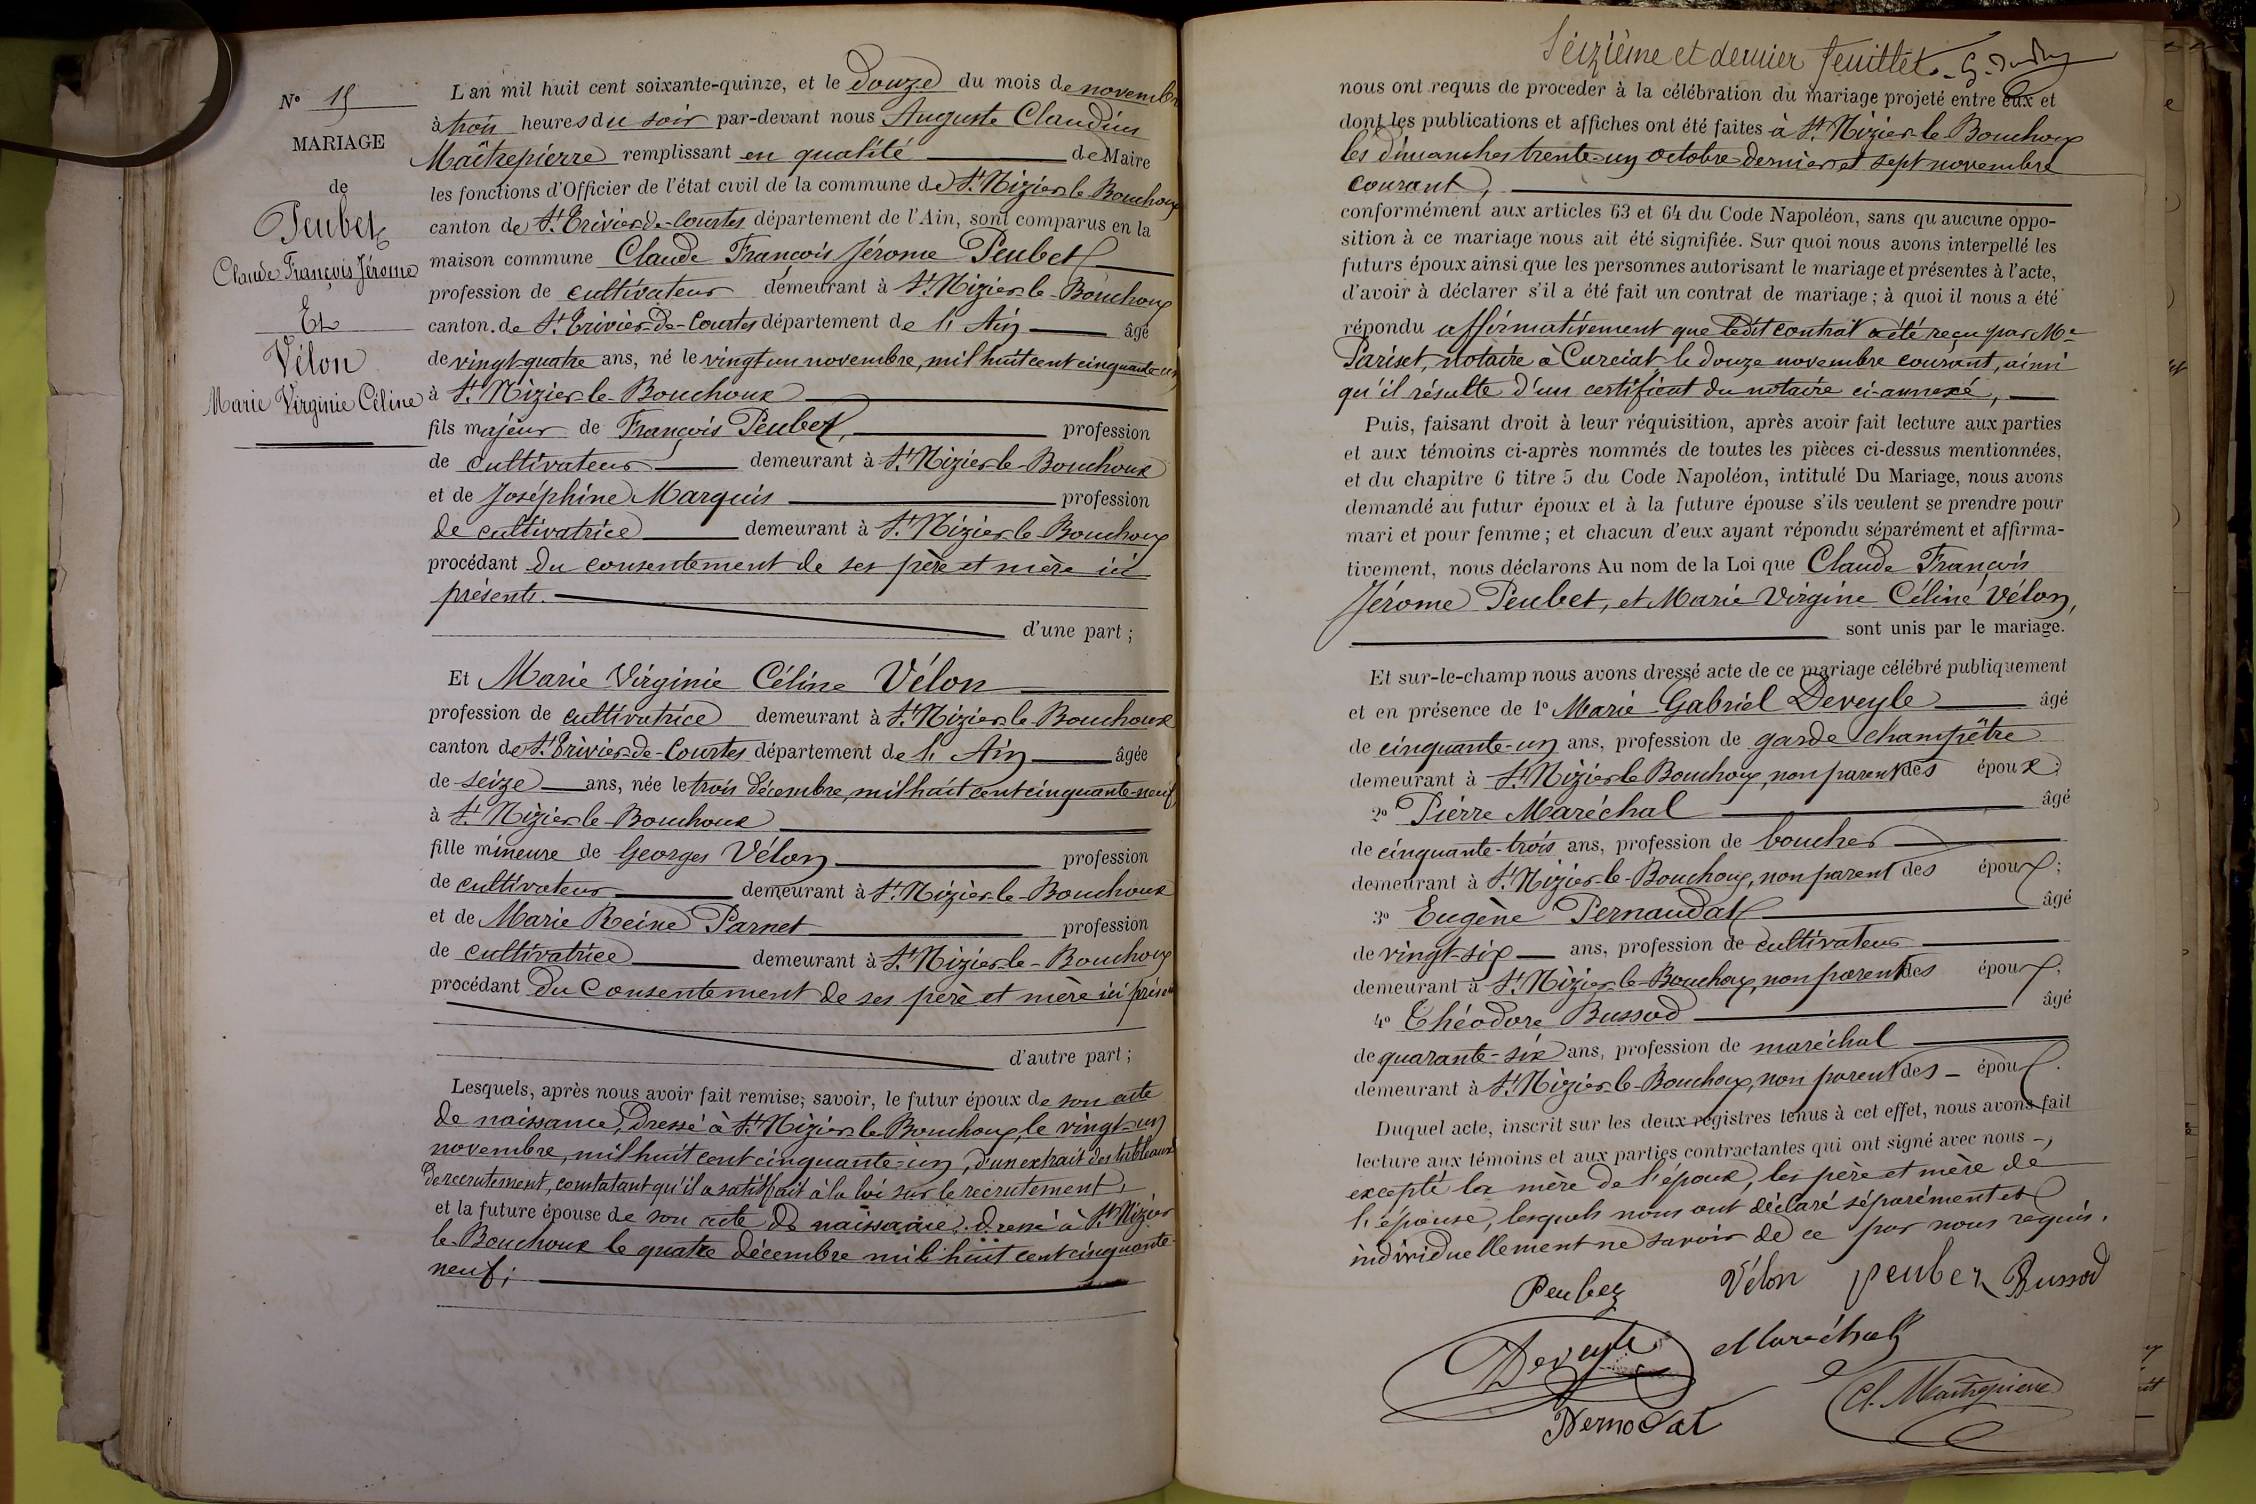 N° 15
MARIAGE
de
Peubet
Claude François Jérome
Et
Vélon
Marie Virginie Céline
L'an mil huit cent soixante-quinze, et le douze du mois de novembre
à trois heures du soir par-devant nous Auguste Claudius
Maîtrepierre remplissant en qualité de Maire
les fonctions d'Officier de l'état civil de la commune de St Nizier-le-Bouchoux
canton de St Trivier-de-Courtes département de l'Ain, sont comparus en la
maison commune Claude François Jérome Peubet
profession de cultivateur demeurant à St Nizier-le-Bouchoux
canton de St Trivier-de-Courtes département de l'Ain âgé
de vingt-quatre ans, né le vingt un novembre, mil huit cent cinquante-un
à St Nizier-le-Bouchoux
fils majeur de François Peubet, profession
de cultivateur demeurant à St Nizier-le-Bouchoux
et de Joséphine Marquis profession
de cultivatrice demeurant à St Nizier-le-Bouchoux
procédant du consentement de ses père et mère ici
présents.
d'une part ;
Et Marie Virginie Céline Vélon
profession de cultivatrice demeurant à St Nizier-le-Bouchoux
canton de St Trivier-de-Courtes département de l'Ain âgée
de seize ans, née le trois décembre, mil huit cent cinquante-neuf
à St Nizier-le-Bouchoux
fille mineure de Georges Vélon profession
de cultivateur demeurant à St Nizier-le-Bouchoux
et de Marie Reine Parnet profession
de cultivatrice demeurant à St Nizier-le-Bouchoux
procédant du consentement de ses père et mère ici présents
d'autre part ;
Lesquels, après nous avoir fait remise; savoir, le futur époux de son acte
de naissance, dressé à St Nizier-le-Bouchoux, le vingt-un
novembre, mil huit cent cinquante-un, d'un extrait des tableaux
de recrutement, constatant qu'il a satisfait à la loi sur le recrutement,
et la future épouse de son acte de naissance, dressé à St Nizier
le-Bouchoux le quatre décembre mil huit cent cinquante-
neuf ;
Seizième et dernier feuillet.
nous ont requis de proceder à la célébration du mariage projeté entre eux et
dont les publications et affiches ont été faites à St Nizier-le-Bouchoux
les dimanches trente-un octobre dernier et sept novembre
courant,
conformément aux articles 63 et 64 du Code Napoléon, sans qu'aucune oppo-
sition à ce mariage nous ait été signifiée. Sur quoi nous avons interpellé les
futurs époux ainsi que les personnes autorisant le mariage et présentes à l'acte,
d'avoir à déclarer s'il a été fait un contrat de mariage ; à quoi il nous a été
répondu affirmativement que ledit contrat a été reçu par Me
Pariset, notaire à Curciat, le douze novembre courant, ainsi
qu'il résulte d'un certificat du notaire ci-annexé,
Puis, faisant droit à leur réquisition, après avoir fait lecture aux parties
et aux témoins ci-après nommés de toutes les pièces ci-dessus mentionnées,
et du chapitre 6 titre 5 du Code Napoléon, intitulé Du Mariage, nous avons
demandé au futur époux et à la future épouse s'ils veulent se prendre pour
mari et pour femme ; et chacun d'eux ayant répondu séparément et affirma-
tivement, nous déclarons Au nom de la Loi que Claude François
Jérome Peubet, et Marie Virgine Céline Vélon,
sont unis par le mariage.
Et sur-le-champ nous avons dressé acte de ce mariage célébré publiquement
et en présence de 1° Marie Gabriel Deveyle âgé
de cinquante-un ans, profession de garde champêtre
demeurant à St Nizier-le-Bouchoux, non parent des époux ;
2° Pierre Maréchal âgé
de cinquante-trois ans, profession de boucher
demeurant à St Nizier-le-Bouchoux, non parent des époux ;
3° Eugène Pernaudat âgé
de vingt-six ans, profession de cultivateur
demeurant à St Nizier-le-Bouchoux, non parent des époux ;
4° Théodore Bussod âgé
de quarante-six ans, profession de maréchal
demeurant à St Nizier-le-Bouchoux, non parent des époux.
Duquel acte, inscrit sur les deux registres tenus à cet effet, nous avons fait
lecture aux témoins et aux parties contractantes qui ont signé avec nous,
excepté la mère de l'époux, les père et mère de
l'épouse, lesquels nous ont déclaré séparément et
individuellement ne savoir de ce par nous requis.
Peubet Vélon peubet Bussod
Deveyle Maréchal
Pernodat Cl. Maîtrepierre